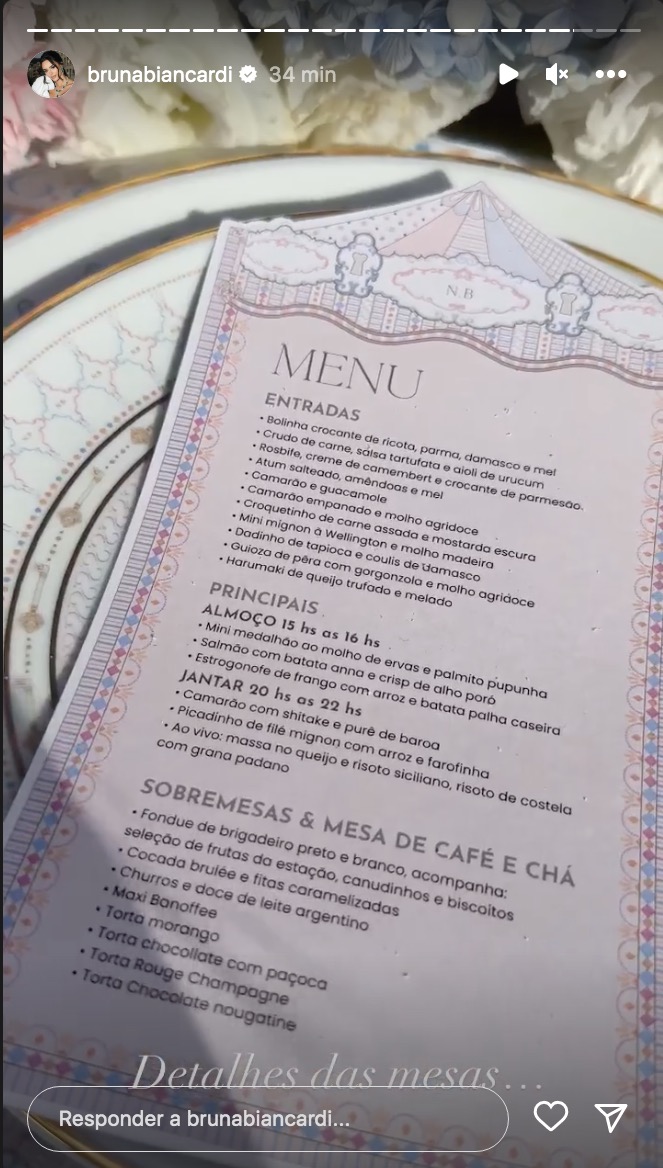 brunabiancardi 34 min
N B
MENU
ENTRADAS
• Bolinha crocante de ricota, parma, damasco e mel
• Crudo de carne, salsa tartufata e aioli de urucum
• Rosbife, creme de camembert e crocante de parmesão.
• Atum salteado, amêndoas e mel
• Camarão e guacamole
• Camarão empanado e molho agridoce
• Croquetinho de carne assada e mostarda escura
• Mini mignon à Wellington e molho madeira
• Dadinho de tapioca e coulis de damasco
• Guioza de pêra com gorgonzola e molho agridoce
• Harumaki de queijo trufado e melado
PRINCIPAIS
ALMOÇO 15 hs as 16 hs
• Mini medalhão ao molho de ervas e palmito pupunha
• Salmão com batata anna e crisp de alho poró
• Estrogonofe de frango com arroz e batata palha caseira
JANTAR 20 hs as 22 hs
• Camarão com shitake e purê de baroa
• Picadinho de filé mignon com arroz e farofinha
• Ao vivo: massa no queijo e risoto siciliano, risoto de costela
com grana padano
SOBREMESAS & MESA DE CAFÉ E CHÁ
• Fondue de brigadeiro preto e branco, acompanha:
seleção de frutas da estação, canudinhos e biscoitos
• Cocada brulée e fitas caramelizadas
• Churros e doce de leite argentino
• Maxi Banoffee
• Torta morango
• Torta chocollate com paçoca
• Torta Rouge Champagne
• Torta Chocolate nougatine
Detalhes das mesas...
Responder a brunabiancardi...